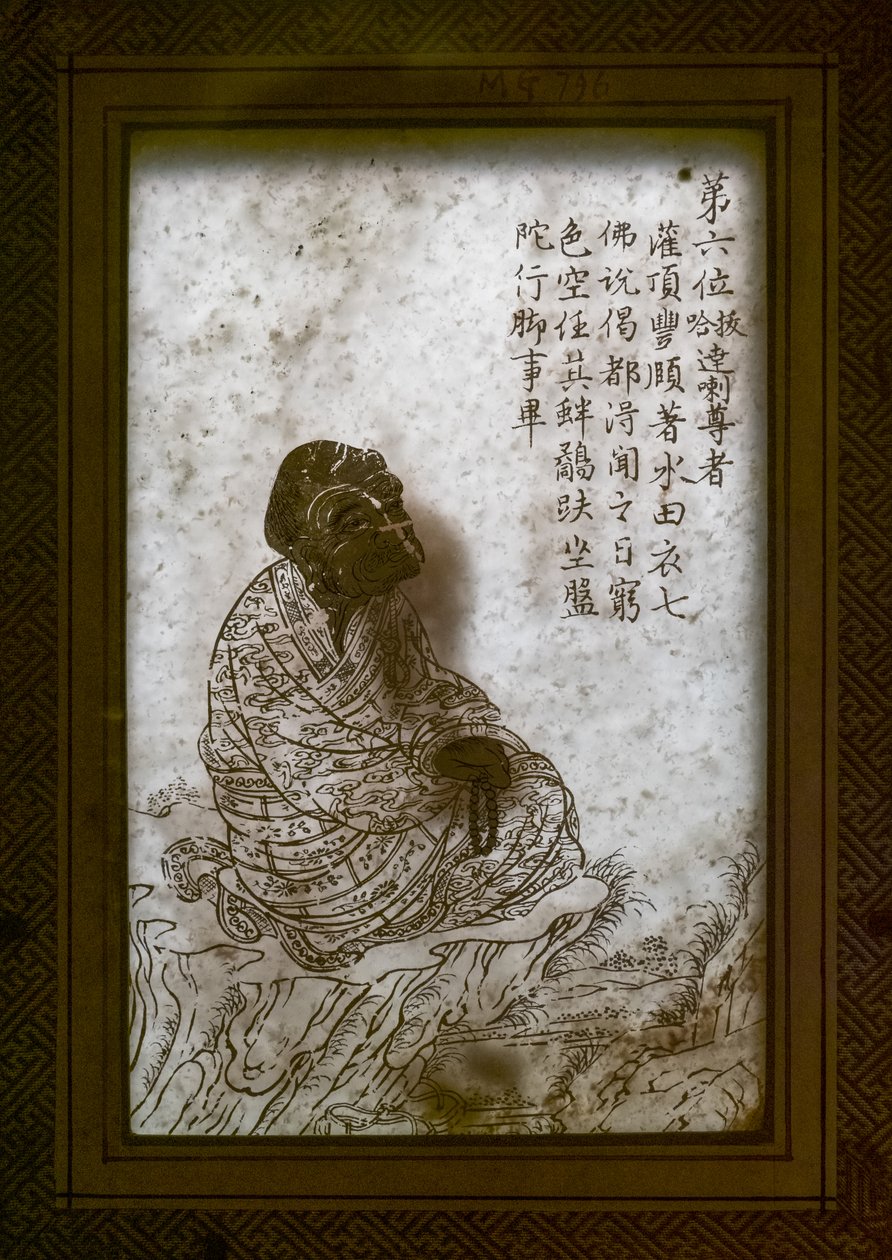 MG 796
第六位拔哈達喇尊者
灌頂豐頤著水田衣七
佛說偈都得聞之日窮
色空任其蚌鷸趺坐盤
陀行脚事畢